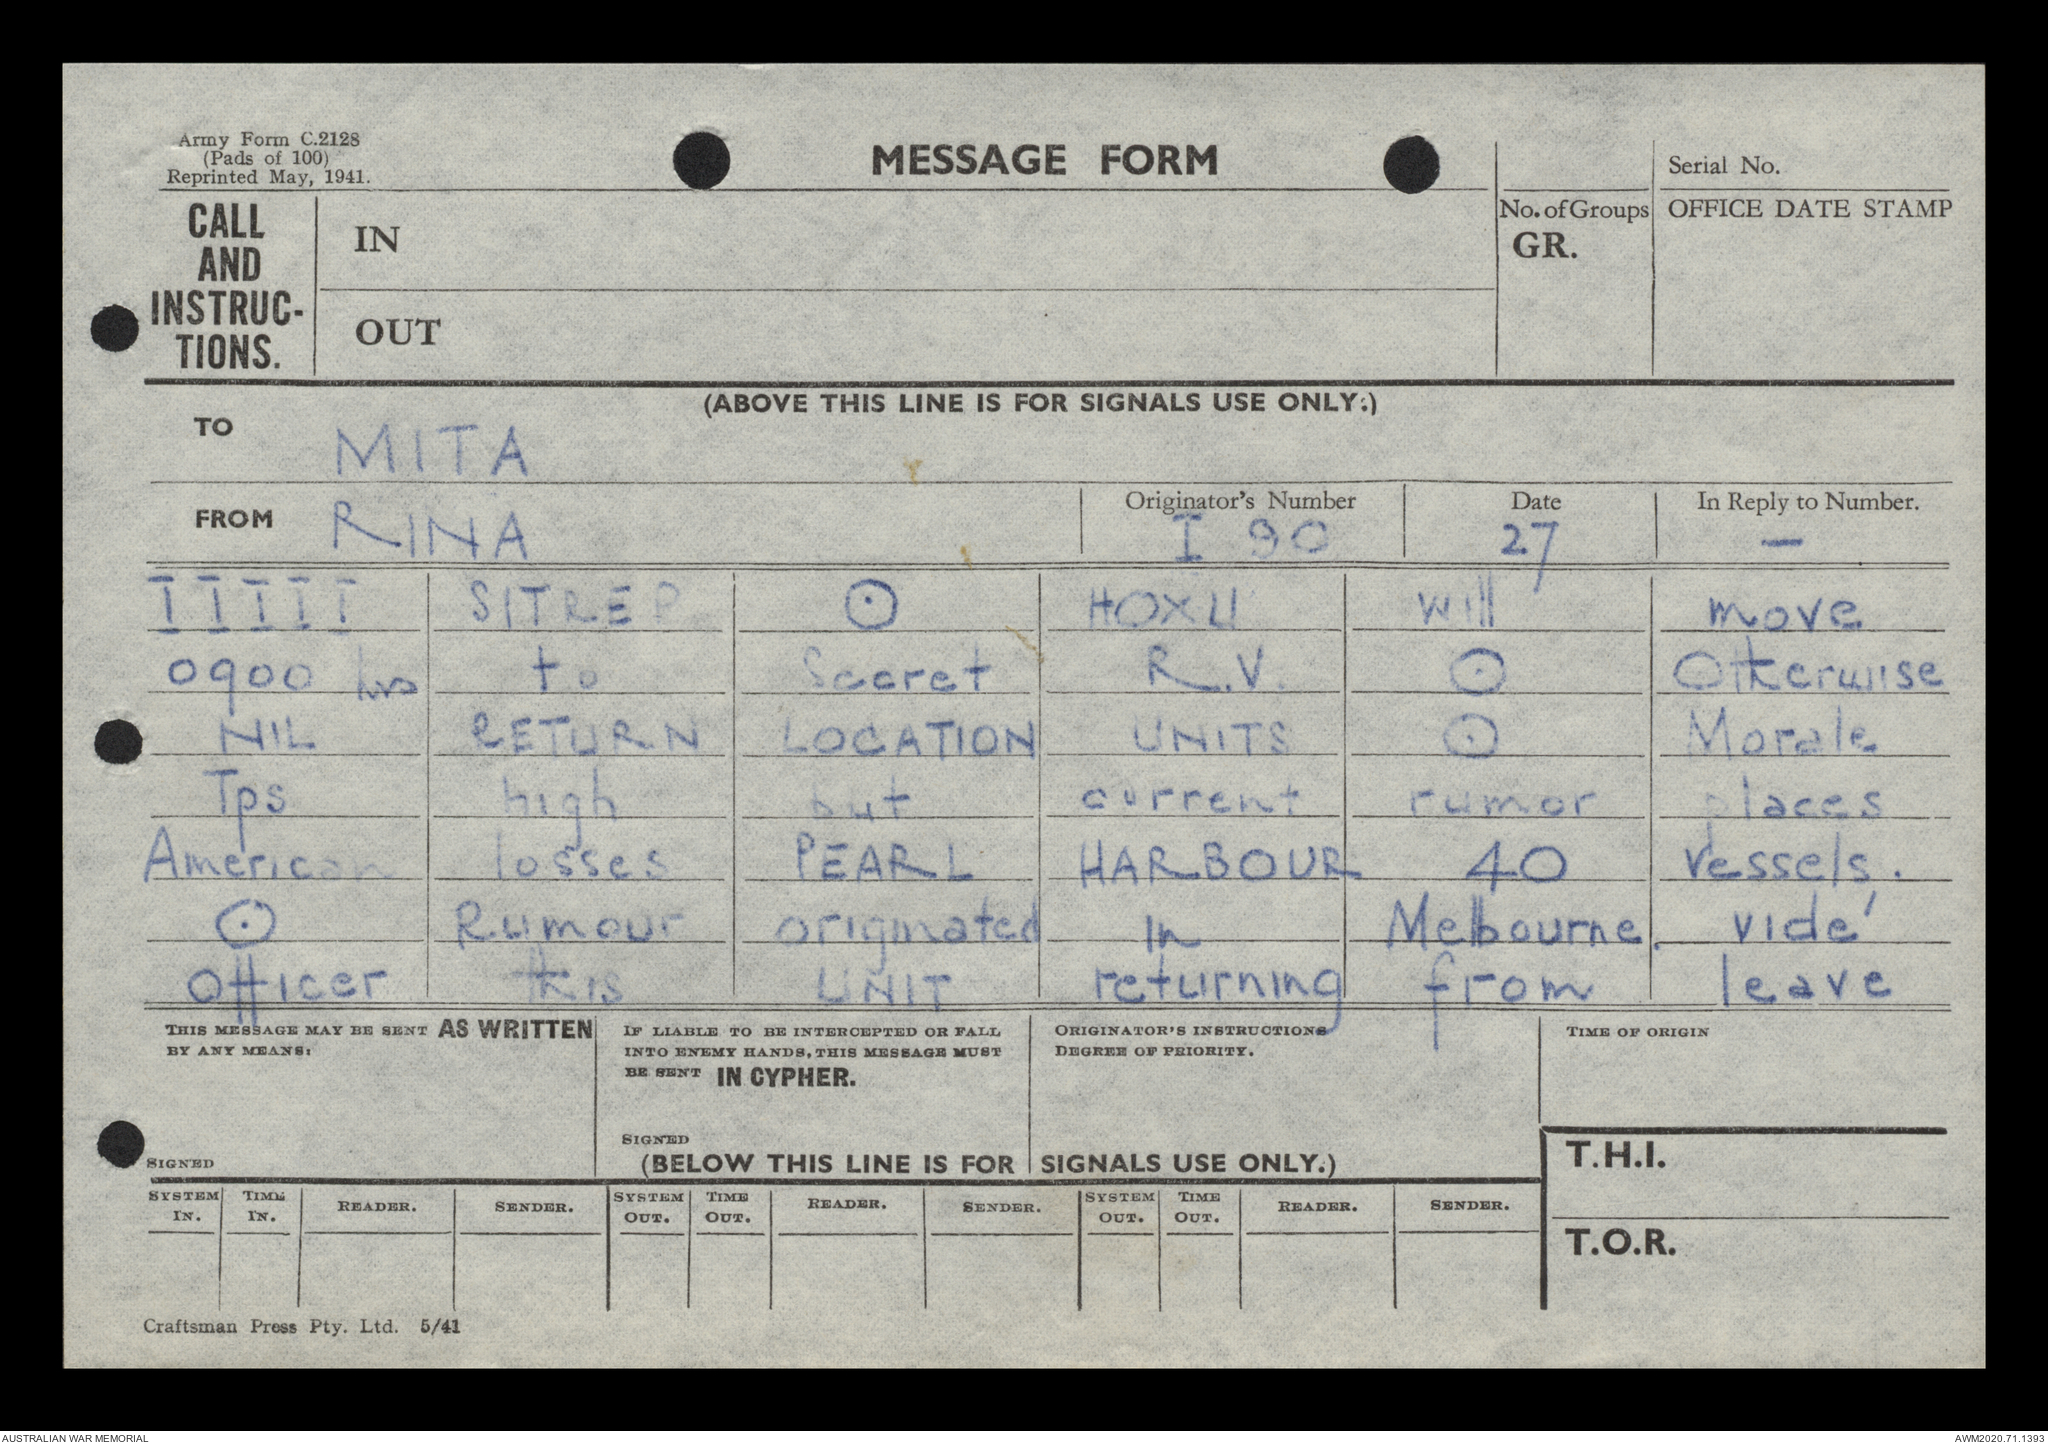 Army Form C.2128
(Pads of 100)
Reprinted May, 1941.
MESSAGE FORM
Serial No.
CALL
AND
INSTRUC-
TIONS.
IN
OUT
No. of Groups
GR.
OFFICE DATE STAMP
(ABOVE THIS LINE IS FOR SIGNALS USE ONLY.)
TO MITA
FROM RINA
Originator's Number I 90
Date 27
In Reply to Number. —
I I I I I SITREP ⊙ HOXU will move
0900 hrs to Secret R.V. ⊙ Otherwise
NIL RETURN LOCATION UNITS ⊙ Morale
Tps high but current rumor places
American losses PEARL HARBOUR 40 vessels.
⊙ Rumour originated in Melbourne. vide'
officer this UNIT returning from leave
THIS MESSAGE MAY BE SENT AS WRITTEN
BY ANY MEANS:
SIGNED
IF LIABLE TO BE INTERCEPTED OR FALL
INTO ENEMY HANDS, THIS MESSAGE MUST
BE SENT IN CYPHER.
SIGNED
ORIGINATOR'S INSTRUCTIONS
DEGREE OF PRIORITY.
TIME OF ORIGIN
(BELOW THIS LINE IS FOR SIGNALS USE ONLY.)
T.H.I.
T.O.R.
SYSTEM IN. TIME IN. READER. SENDER. SYSTEM OUT. TIME OUT. READER. SENDER. SYSTEM OUT. TIME OUT. READER. SENDER.
Craftsman Press Pty. Ltd. 5/41
AUSTRALIAN WAR MEMORIAL
AWM2020.71.1393